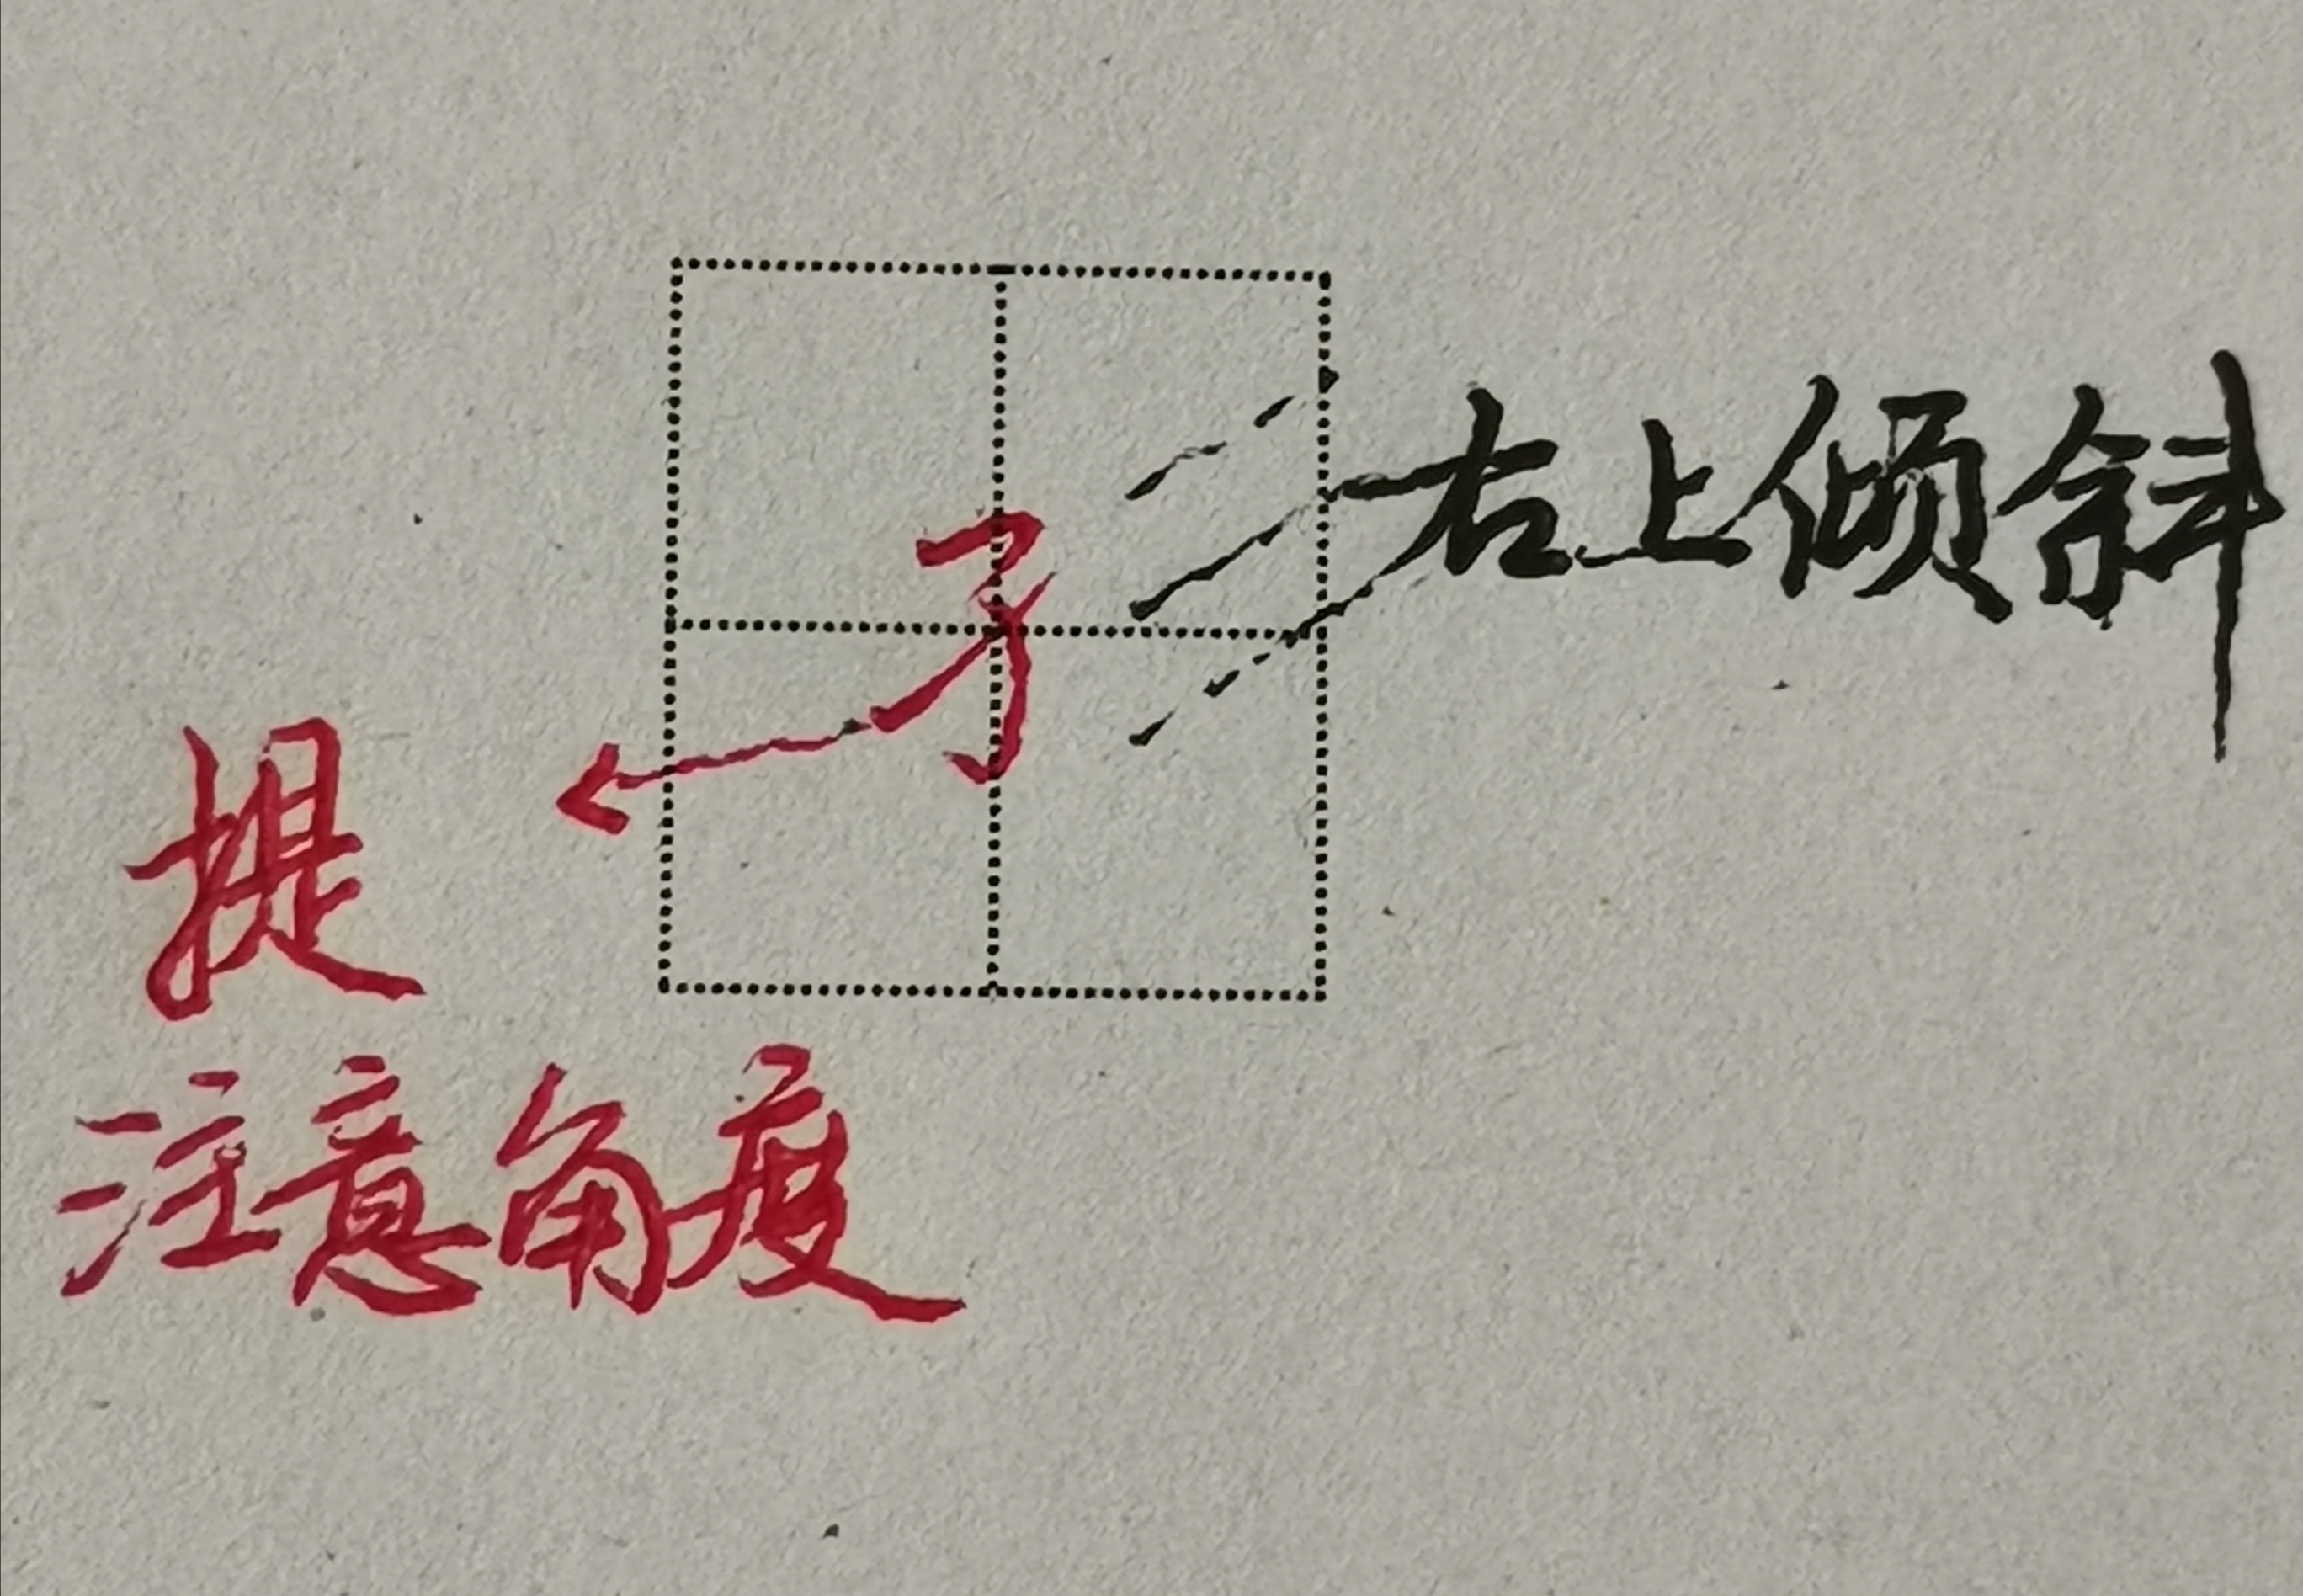 右上倾斜
孑
提
注意角度